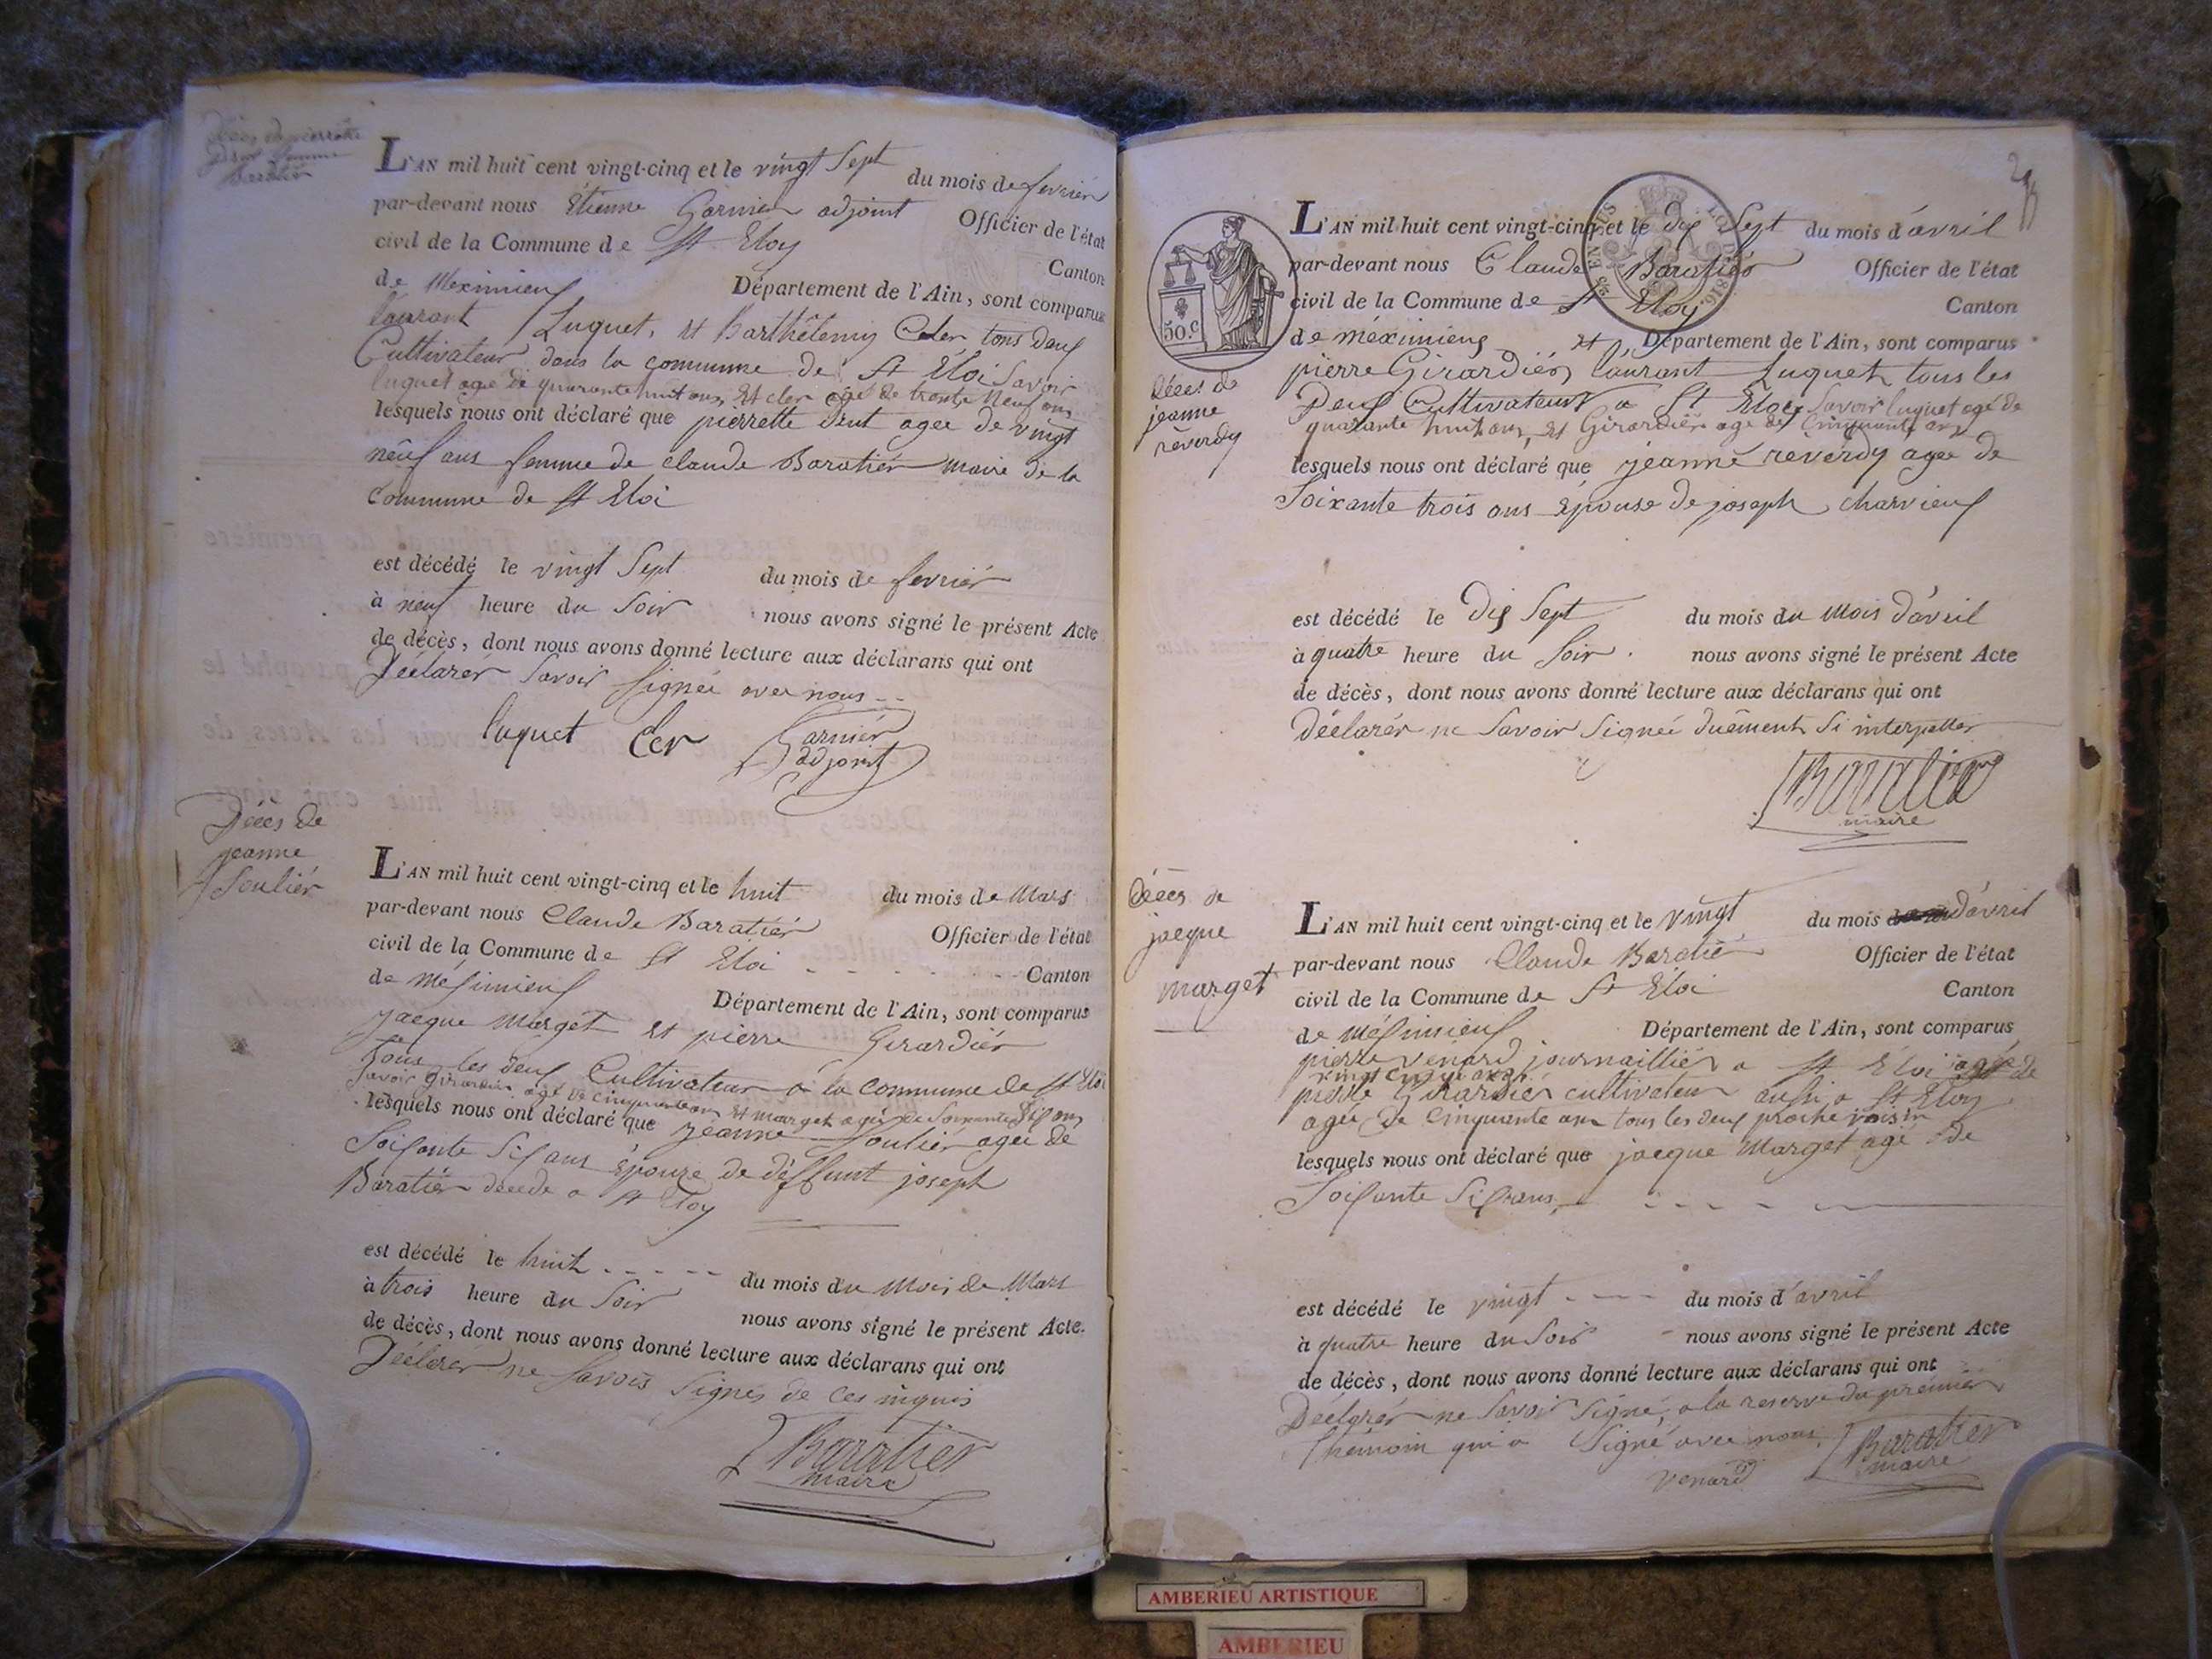 Décès de pierrette
Drut femme
Baratier
L'AN mil huit cent vingt-cinq et le vingt Sept du mois de fevrier
par-devant nous Etienne Garnier adjoint Officier de l'état
civil de la Commune de St Eloy
Canton
de Meximieux Département de l'Ain, sont comparus
laurant Luquet, et Barthélemy Cler tous deux
Cultivateur dans la commune de St Eloi Savoir
luquet age de quarante huit ans et cler agé de trente neuf ans
lesquels nous ont déclaré que pierrette Drut agee de vingt
neuf ans femme de claude Baratier maire de la
commune de St Eloi
est décédé le vingt Sept du mois de fevrier
à neuf heure du Soir nous avons signé le présent Acte
de décès, dont nous avons donné lecture aux déclarans qui ont
Déclarér Savoir Signée avec nous
luquet Cler Garnier
adjoint
Décès de
jeanne
Soulier
L'AN mil huit cent vingt-cinq et le huit du mois de Mars
par-devant nous Claude Baratier Officier de l'état
civil de la Commune de St Eloi Canton
de Mésimieux Département de l'Ain, sont comparus
jacque Marget et pierre Girardier
tous les deux Cultivateur a la commune de St Eloi
Savoir Girardier agé de cinquante ans et marget agée de Soixante Six ans
lesquels nous ont déclaré que jeanne Soulier agee de
Soixante Six ans Epouze de deffunt joseph
Baratier decede a St Eloy
est décédé le huit du mois du Mois de Mars
à trois heure du Soir nous avons signé le présent Acte
de décès, dont nous avons donné lecture aux déclarans qui ont
Déclarér ne Savoir Signer de ces
Baratier
maire
2
50.c
L'AN mil huit cent vingt-cinq et le dix Sept du mois d'avril
par-devant nous Claude Baratier Officier de l'état
civil de la Commune de St Eloy Canton
de méximieux et Département de l'Ain, sont comparus
pierre Girardier, laurant Luquet tous les
Deux Cultivateurs a St Eloy Savoir luquet agé de
quarante huit ans et Girardier age de Cinquante ans
Décés de
jeanne
réverdy
lesquels nous ont déclaré que jeanne réverdy agee de
Soixante trois ans épouse de joseph charvieux
est décédé le Dix Sept du mois du Mois d'avril
à quatre heure du Soir nous avons signé le présent Acte
de décès, dont nous avons donné lecture aux déclarans qui ont
Déclarér ne Savoir Signée duement Si interpeller
Baratier
maire
Décés de
jacque
marget
L'AN mil huit cent vingt-cinq et le vingt du mois d'avril
par-devant nous Claude Baratier Officier de l'état
civil de la Commune de St Eloi Canton
de Mésimieux Département de l'Ain, sont comparus
pierre venard journaillier a St Eloi agée de
vingt cinq ans
pierre Girardier cultivateur aussi a St Eloy
agée de Cinquante ans tous les deux proche voisin
lesquels nous ont déclaré que jacque Marget agé de
Soixante Six ans
est décédé le vingt du mois d'avril
à quatre heure du Soir nous avons signé le présent Acte
de décès, dont nous avons donné lecture aux déclarans qui ont
Déclarér ne Savoir Signé, a la reserve du premier
themoin qui a Signé avec nous
venard Baratier
maire
AMBERIEU ARTISTIQUE
AMBERIEU